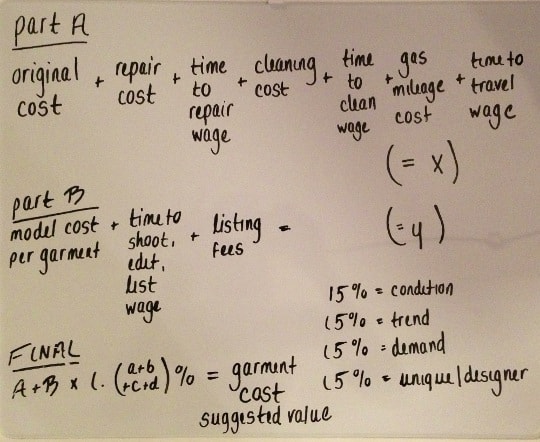 part A
original cost + repair cost + time to repair wage + cleaning cost + time to clean wage + gas mileage cost + time to travel wage
(= x)
part B
model cost per garment + time to shoot, edit, list wage + listing fees =
(= y)
15% = condition
15% = trend
15% = demand
15% = unique/designer
FINAL
A+B x 1. (a+b+c+d)% = garment cost
suggested value